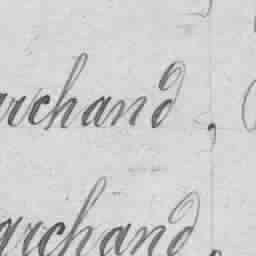 archand,
archand,